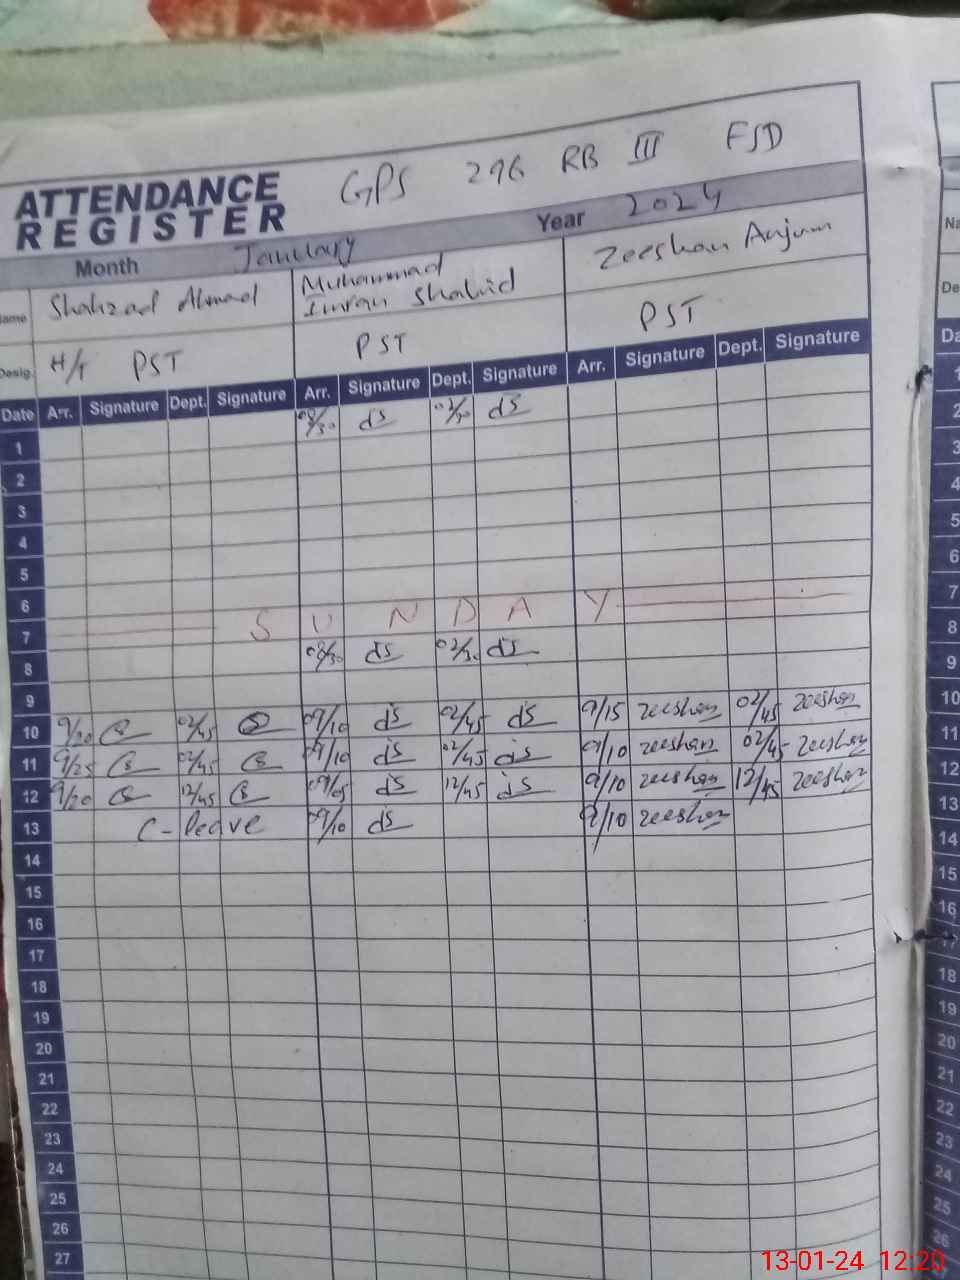 ATTENDANCE REGISTER GPS 296 RB III FSD
Month January Year 2024
Name Shahzad Ahmad Muhammad Imran Shahid Zeeshan Anjum
Desig. H/T PST PST PST
Date Arr. Signature Dept. Signature Arr. Signature Dept. Signature Arr. Signature Dept. Signature
1 08/30 02/30
2
3
4
5
6
7 SUNDAY
8 08/30 02/30
9
10 9/20 02/45 09/10 02/45 9/15 zeeshan 02/45 zeeshan
11 9/25 02/45 09/10 02/45 9/10 zeeshan 02/45 zeeshan
12 9/20 12/45 09/05 12/45 9/10 zeeshan 12/45 zeeshan
13 C-Leave 09/10 9/10 zeeshan
14
15
16
17
18
19
20
21
22
23
24
25
26
27
Na
De
Da
1
2
3
4
5
6
7
8
9
10
11
12
13
14
15
16
17
18
19
20
21
22
23
24
25
26
13-01-24 12:20